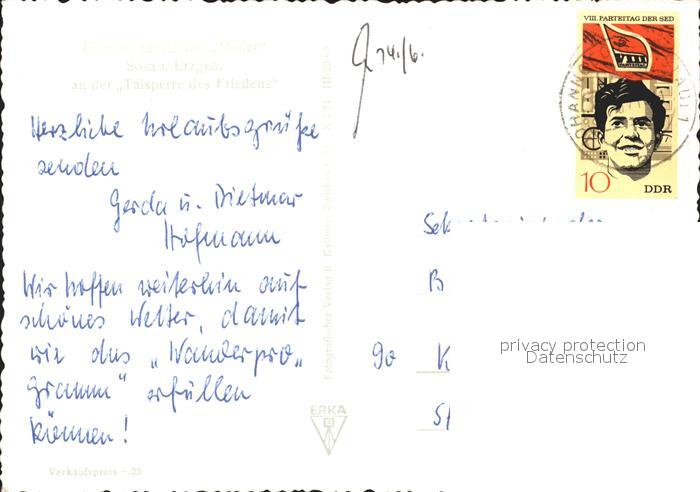 "Meiler"
Sosa i. Erzgeb.
an der „Talsperre des Friedens"
Herzliche Urlaubsgrüße
senden
Gerda u. Dietmar
Hofmann
Wir hoffen weiterhin auf
schönes Wetter, damit
wir das „Wanderpro„
gramm" erfüllen
können!
Verkaufspreis -.25
ERKA
Fotografischer Verlag
14./6.
VIII. PARTEITAG DER SED
10
DDR
B
90 K
privacy protection
Datenschutz